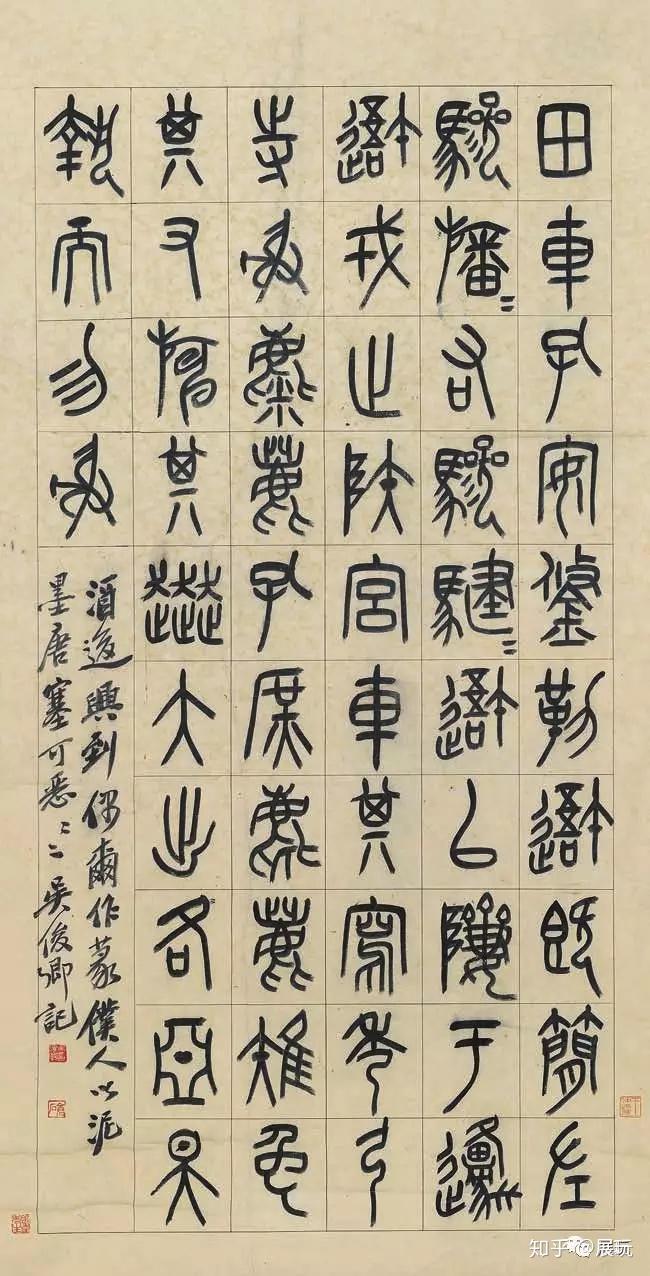 田車孔安鋚勒吾既簡左
驂旛〻右驂騝〻吾以隮于邍
吾戎止陝宮車其寫秀弓
寺射麋鹿孔庶麀鹿雉兔
其又其大出各亞昊
執而勿射
酒後興到偶爾作篆僕人以泥
墨唐塞可惡〻〻吳俊卿記
知乎 @展玩